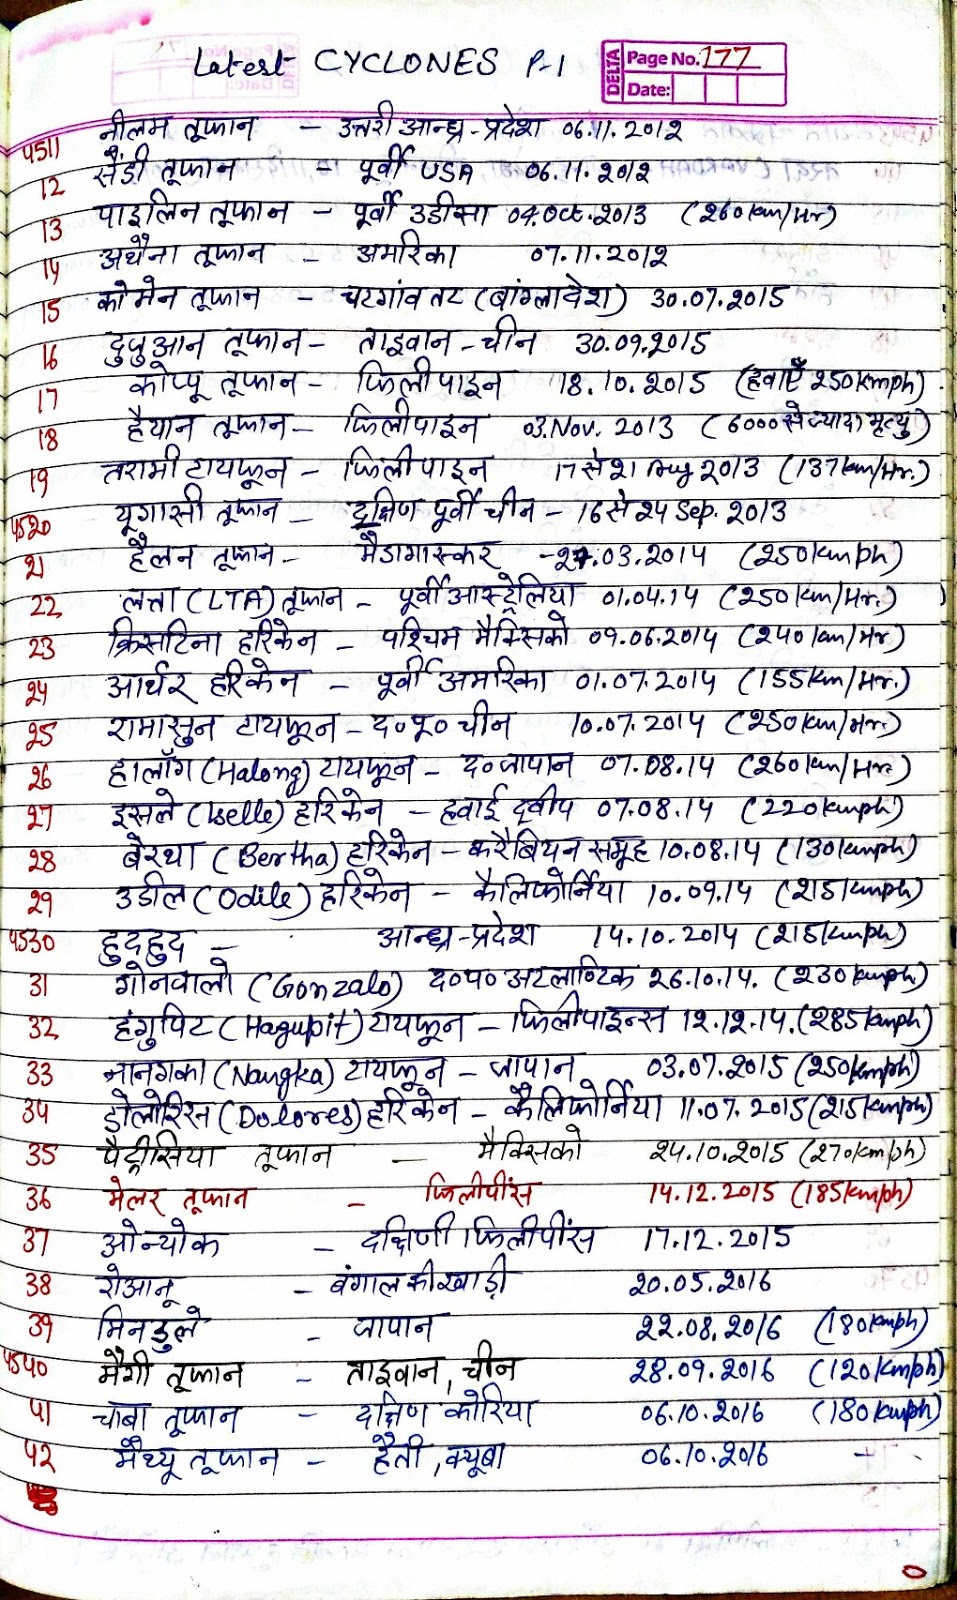 Latest CYCLONES P-1
DELTA Page No. 177
Date:
4511 नीलम तूफान - उत्तरी आन्ध्र-प्रदेश 06.11.2012
12 सैंडी तूफान - पूर्वी USA 06.11.2012
13 पाइलिन तूफान - पूर्वी उडीसा 04.Oct.2013 (260km/Hr)
14 अथैना तूफान - अमरिका 07.11.2012
15 कोमेन तूफान - चटगांव तट (बांग्लादेश) 30.07.2015
16 दुजुआन तूफान - ताइवान - चीन 30.09.2015
17 कोप्पू तूफान - फिलीपाइन 18.10.2015 (हवाएँ 250kmph)
18 हैयान तूफान - फिलीपाइन 03.Nov.2013 (6000 से ज्यादा मृत्यु)
19 तरामी टायफून - फिलीपाइन 17 से 21 Aug 2013 (137km/Hr.)
4520 यूगासी तूफान - दक्षिण पूर्वी चीन - 16 से 24 Sep. 2013
21 हैलन तूफान - मैडागास्कर - 27.03.2014 (250kmph)
22 लत्ता (LTA) तूफान - पूर्वी आस्ट्रेलिया 01.04.14 (250km/Hr.)
23 क्रिसटिना हरिकेन - पश्चिम मैक्सिको 09.06.2014 (240km/Hr.)
24 आर्थर हरिकेन - पूर्वी अमरिका 01.07.2014 (155km/Hr.)
25 रामासुन टायफून - द०पू० चीन 10.07.2014 (250km/Hr.)
26 हालॉग (Halong) टायफून - द०जापान 07.08.14 (260km/Hr.)
27 इसले (Iselle) हरिकेन - हवाई द्वीप 07.08.14 (220kmph)
28 बेरथा (Bertha) हरिकेन - करैबियन समूह 10.08.14 (130kmph)
29 उडील (Odile) हरिकेन - कैलिफोर्निया 10.09.14 (215kmph)
4530 हुदहुद - आन्ध्र-प्रदेश 14.10.2014 (215kmph)
31 गोनवालो (Gonzalo) द०प० अटलाण्टिक 26.10.14. (230kmph)
32 हंगुपिट (Hagupit) टायफून - फिलीपाइन्स 12.12.14. (285kmph)
33 नानगका (Nangka) टायफून - जापान 03.07.2015 (250kmph)
34 डोलोरिस (Dolores) हरिकेन - कैलिफोर्निया 11.07.2015 (215kmph)
35 पैट्रीसिया तूफान - मैक्सिको 24.10.2015 (270km/ph)
36 मेलर तूफान - फिलीपींस 14.12.2015 (185kmph)
37 ओन्योक - दक्षिणी फिलीपींस 17.12.2015
38 रोआनू - बंगाल की खाड़ी 20.05.2016
39 मिनडुले - जापान 22.08.2016 (180kmph)
4540 मैगी तूफान - ताइवान, चीन 28.09.2016 (120kmph)
41 चाबा तूफान - दक्षिण कोरिया 06.10.2016 (180kmph)
42 मैथ्यू तूफान - हैती, क्यूबा 06.10.2016 -
0